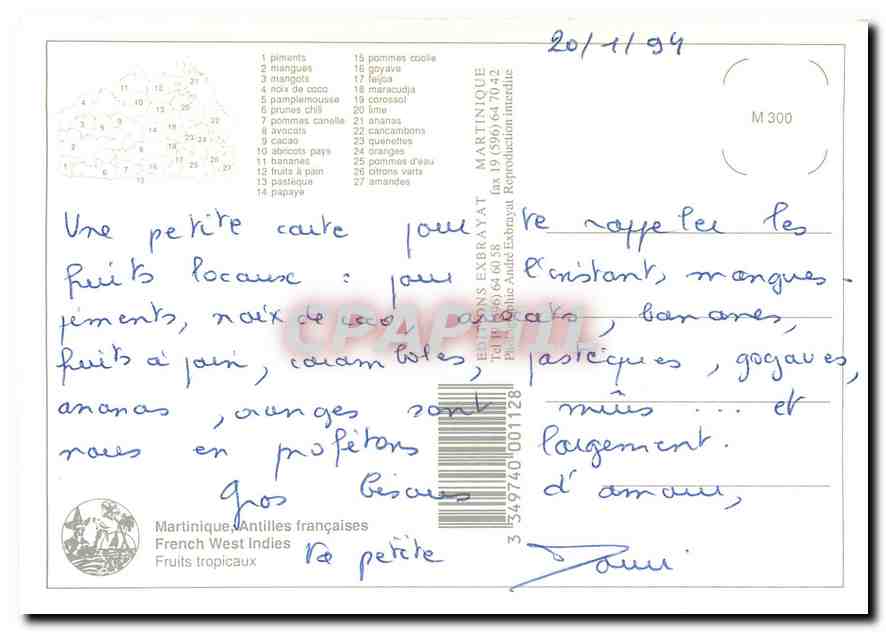 20/1/94
1 piments
2 mangues
3 mangots
4 noix de coco
5 pamplemousse
6 prunes chili
7 pommes canelle
8 avocats
9 cacao
10 abricots pays
11 bananes
12 fruits à pain
13 pastèque
14 papaye
15 pommes coolie
16 goyave
17 feijoa
18 maracudja
19 corossol
20 lime
21 ananas
22 cancambons
23 quenettes
24 oranges
25 pommes d'eau
26 citrons varts
27 amandes
EDITIONS EXBRAYAT MARTINIQUE
Tel 19 (596) 64 60 58 fax 19 (596) 64 70 42
Photographie André Exbrayat Reproduction interdite
M 300
Une petite carte pour te rappeler les
fruits locaux : pour l'instant, mangues -
piments, noix de coco, avocats, bananes,
fruits à pain, caramboles, pastèques, goyaves,
ananas, oranges sont mûrs ... et
nous en profitons largement.
Gros bisous d'amour,
Ta petite
CPAPHIL
3 349740 001128
Martinique, Antilles françaises
French West Indies
Fruits tropicaux